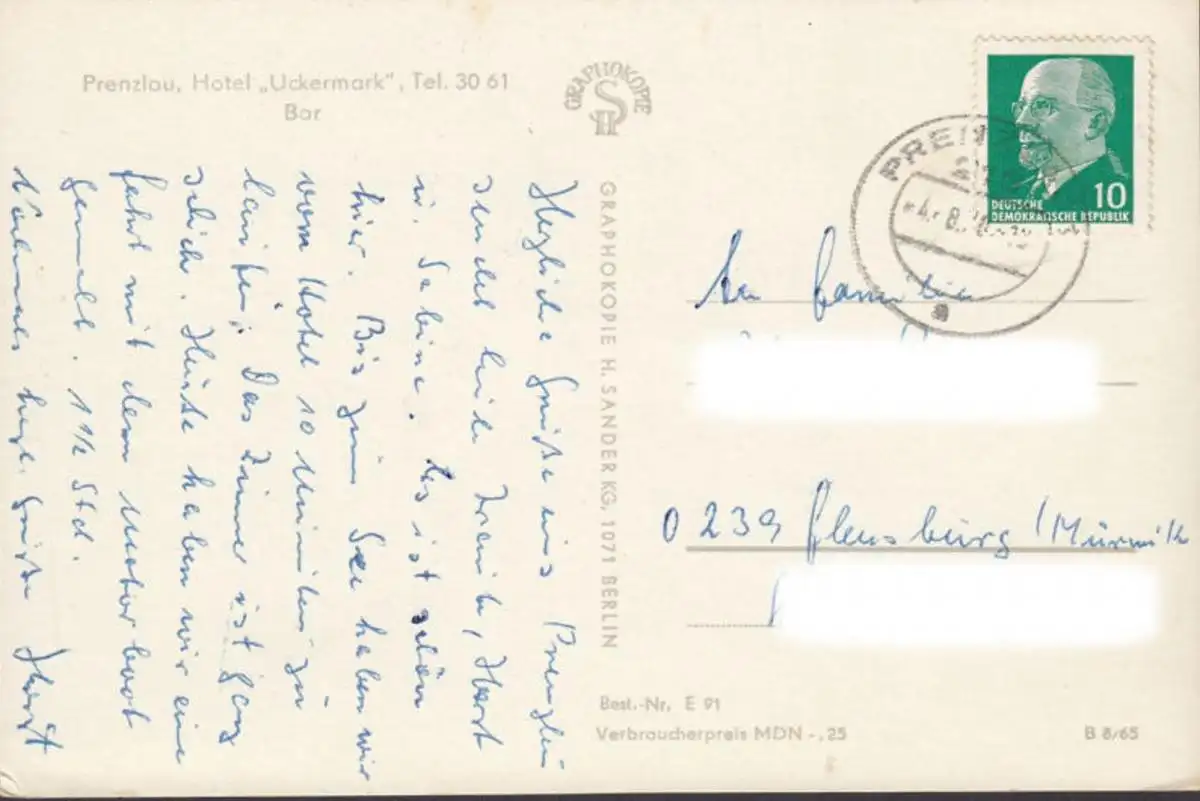 Prenzlau, Hotel „Uckermark", Tel. 30 61
Bar
GRAPHOKOPIE
H S
GRAPHOKOPIE H. SANDER KG, 1071 BERLIN
DEUTSCHE
DEMOKRATISCHE REPUBLIK
10
PREN
Herzliche Grüße aus Prenzlau
sendet Euch Horst
u. Sabine. Es ist schön
hier. Bis zum See haben wir
vom Hotel 10 Minuten zu
laufen. Das Zimmer ist ganz
schick. Heute haben wir eine
fahrt mit dem Motorboot
gemacht. 1 1/2 Std.
Nochmals herzl. Grüße Horst
An Familie
0239 Flensburg / Mürwik
Best.-Nr. E 91
Verbraucherpreis MDN -,25
B 8/65